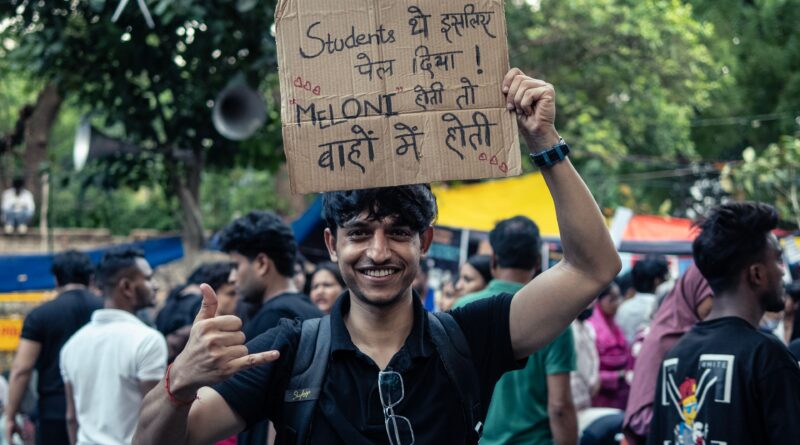 Students थे इसलिए
पेल दिया !
"MELONI" होती तो
बाहों में होती
WHITE